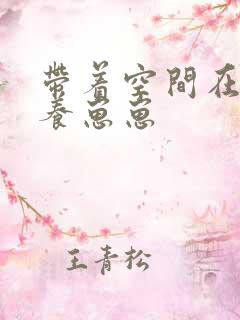 帶着空間在
養思思
王青松